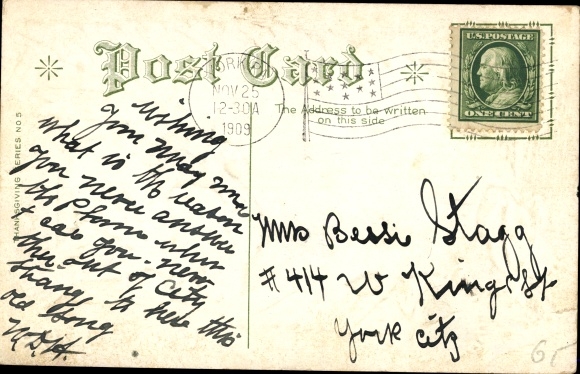 Post Card
YORK, PA
NOV 25
12-30A
1909
U.S. POSTAGE
ONE CENT
The Address to be written
on this side
THANKSGIVING SERIES NO 5
Wishing
you many more
what is the reason
you never answer
the phone when
I call you
out of City
to hear this
old song
Miss Bessi Stagg
# 414 W King St
York City
65